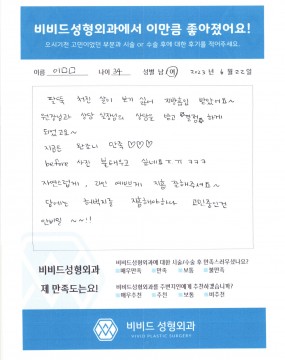 비비드성형외과에서 이만큼 좋아졌어요!
모시기전 고민이었던 부분과 시술 or 수술 후에 대한 후기를 적어주세요.
이름 이ㅁㅁ 나이 34 성별 남 / 여 2023년 6월 22일
팔뚝 처진 살이 보기 싫어 지방흡입 받았어요~
원장님과 상담 실장님의 상담을 받고 결정 하게
되었고요~
지금은 완전 만족 ♡♡♡
before 사진 불태우고 싶네요 ㅜㅜ ㅋㅋㅋ
자연스럽게, 라인 예쁘게 지흡 잘해주세요~
담에는 허벅지를 지흡해야하나 고민중인건
안비밀 ~~!!
비비드성형외과
제 만족도는요!
비비드성형외과에 대한 시술/수술 후 만족스러우셨나요?
매우만족 만족 보통 불만족
비비드성형외과를 주변지인에게 추천하겠습니까?
매우추천 추천 보통 비추천
비비드 성형외과
VIVID PLASTIC SURGERY